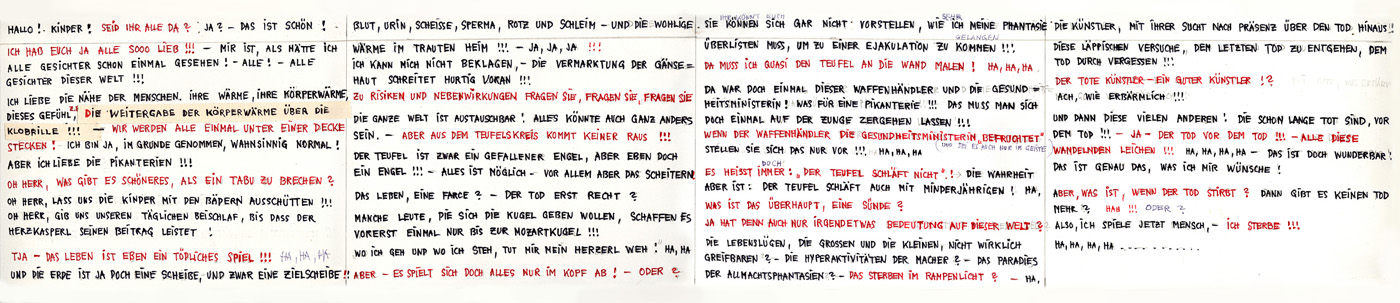 HALLO! KINDER! SEID IHR ALLE DA? JA? - DAS IST SCHÖN!
ICH HAB EUCH JA ALLE SOOO LIEB !!! - MIR IST, ALS HÄTTE ICH
ALLE GESICHTER SCHON EINMAL GESEHEN! - ALLE! - ALLE
GESICHTER DIESER WELT !!!
ICH LIEBE DIE NÄHE DER MENSCHEN. IHRE WÄRME, IHRE KÖRPERWÄRME,
DIESES GEFÜHL, DIE WEITERGABE DER KÖRPERWÄRME ÜBER DIE
KLOBRILLE !!! - WIR WERDEN ALLE EINMAL UNTER EINER DECKE
STECKEN! ICH BIN JA, IM GRUNDE GENOMMEN, WAHNSINNIG NORMAL!
ABER ICH LIEBE DIE PIKANTERIEN !!!
OH HERR, WAS GIBT ES SCHÖNERES, ALS EIN TABU ZU BRECHEN?
OH HERR, LASS UNS DIE KINDER MIT DEN BÄDERN AUSSCHÜTTEN !!!
OH HERR, GIB UNS UNSEREN TÄGLICHEN BEISCHLAF, BIS DASS DER
HERZKASPERL SEINEN BEITRAG LEISTET !
TJA - DAS LEBEN IST EBEN EIN TÖDLICHES SPIEL !!! HA, HA, HA
UND DIE ERDE IST JA DOCH EINE SCHEIBE, UND ZWAR EINE ZIELSCHEIBE!!
BLUT, URIN, SCHEISSE, SPERMA, ROTZ UND SCHLEIM - UND DIE WOHLIGE
WÄRME IM TRAUTEN HEIM !!! - JA, JA, JA !!!
ICH KANN MICH NICHT BEKLAGEN, - DIE VERMARKTUNG DER GÄNSE=
HAUT SCHREITET HURTIG VORAN !!!
ZU RISIKEN UND NEBENWIRKUNGEN FRAGEN SIE, FRAGEN SIE, FRAGEN SIE
DIE GANZE WELT IST AUSTAUSCHBAR! ALLES KÖNNTE AUCH GANZ ANDERS
SEIN. - ABER AUS DEM TEUFELSKREIS KOMMT KEINER RAUS !!!
DER TEUFEL IST ZWAR EIN GEFALLENER ENGEL, ABER EBEN DOCH
EIN ENGEL !!! - ALLES IST MÖGLICH - VOR ALLEM ABER DAS SCHEITERN
DAS LEBEN, EINE FARCE? - DER TOD ERST RECHT?
MANCHE LEUTE, DIE SICH DIE KUGEL GEBEN WOLLEN, SCHAFFEN ES
VORERST EINMAL NUR BIS ZUR MOZARTKUGEL !!!
WO ICH GEH UND WO ICH STEH, TUT MIR MEIN HERZERL WEH! HA, HA
ABER - ES SPIELT SICH DOCH ALLES NUR IM KOPF AB! - ODER?
SIE KÖNNEN SICH GAR NICHT VORSTELLEN, WIE SEHR ICH MEINE PHANTASIE
ÜBERLISTEN MUSS, UM ZU EINER EJAKULATION ZU GELANGEN KOMMEN !!!
DA MUSS ICH QUASI DEN TEUFEL AN DIE WAND MALEN! HA, HA, HA
DA WAR DOCH EINMAL DIESER WAFFENHÄNDLER UND DIE GESUND=
HEITSMINISTERIN! WAS FÜR EINE PIKANTERIE !!! DAS MUSS MAN SICH
DOCH EINMAL AUF DER ZUNGE ZERGEHEN LASSEN !!!
WENN DER WAFFENHÄNDLER DIE GESUNDHEITSMINISTERIN „BEFRUCHTET"
STELLEN SIE SICH DAS NUR VOR !!! HA, HA, HA
ES HEISST DOCH IMMER: „DER TEUFEL SCHLÄFT NICHT"! DIE WAHRHEIT
ABER IST: DER TEUFEL SCHLÄFT AUCH MIT MINDERJÄHRIGEN! HA,
WAS IST DAS ÜBERHAUPT, EINE SÜNDE?
JA HAT DENN AUCH NUR IRGENDETWAS BEDEUTUNG AUF DIESER WELT?
DIE LEBENSLÜGEN, DIE GROSSEN UND DIE KLEINEN, NICHT WIRKLICH
GREIFBAREN? - DIE HYPERAKTIVITÄTEN DER MACHER? - DAS PARADIES
DER ALLMACHTSPHANTASIEN? - DAS STERBEN IM RAMPENLICHT? - HA,
DIE KÜNSTLER, MIT IHRER SUCHT NACH PRÄSENZ ÜBER DEN TOD HINAUS!!
DIESE LÄPPISCHEN VERSUCHE, DEM LETZTEN TOD ZU ENTGEHEN, DEM
TOD DURCH VERGESSEN !!!
DER TOTE KÜNSTLER - EIN GUTER KÜNSTLER !?
ACH, WIE ERBÄRMLICH !!!
UND DANN DIESE VIELEN ANDEREN! DIE SCHON LANGE TOT SIND, VOR
DEM TOD !!! - JA - DER TOD VOR DEM TOD !!! - ALLE DIESE
WANDELNDEN LEICHEN !!! HA, HA, HA, HA - DAS IST DOCH WUNDERBAR!
DAS IST GENAU DAS, WAS ICH MIR WÜNSCHE!
ABER, WAS IST, WENN DER TOD STIRBT? DANN GIBT ES KEINEN TOD
MEHR? HAH !!! ODER?
ALSO, ICH SPIELE JETZT MENSCH, - ICH STERBE !!!
HA, HA, HA, HA - - - - - - - - -